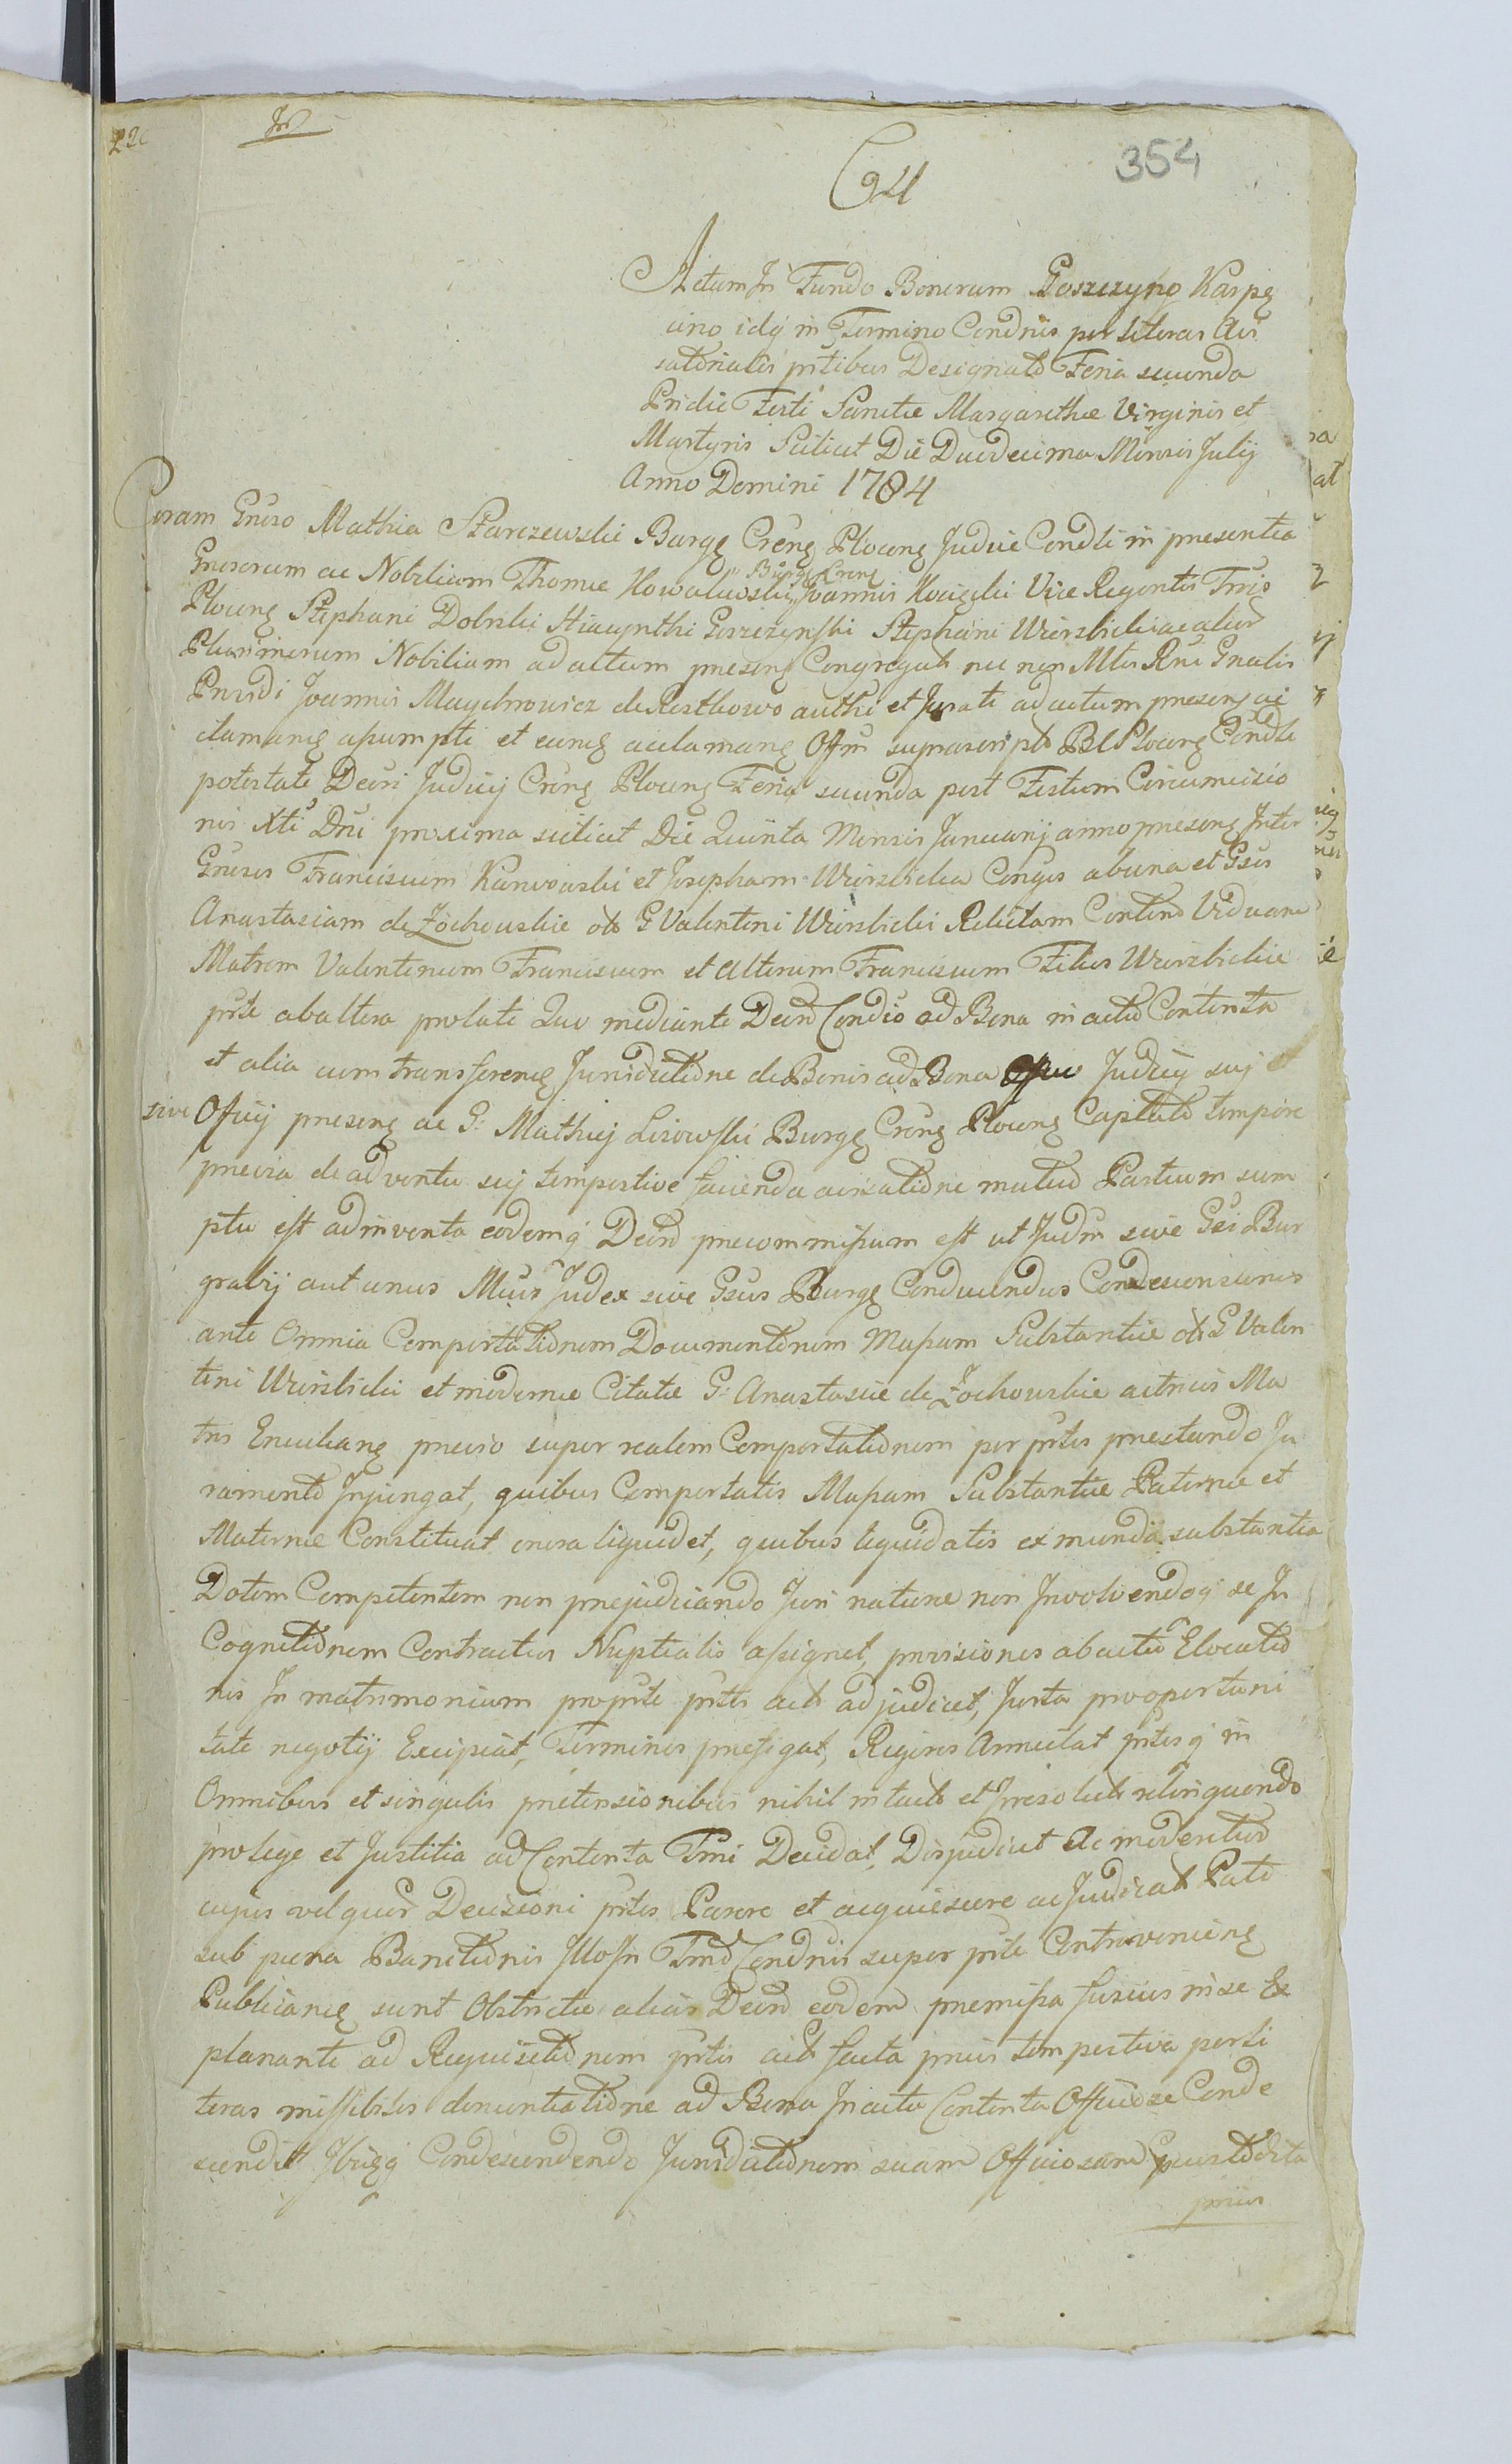 354
Actum In Fundo Bonorum Goszczyno Karpę
cino idq in Termino Condnis per literas Avi
satoriales ptibus Designato Feria secunda
Pridie Festi Sanctæ Margarethæ Virginis et
Martyris Scilicet Die Duodecima Mensis Julij
Anno Domini 1784
Coram Gnroso Mathia Starczewski Burgę Crenę Plocenę Judice Condli in presentia
Gnrosorum ac Nobilium Thomæ Kowalewski Burgę Crenę Joannis Kocięcki Vice Regentis Tris
Plocenę Stephani Dobrski Hiacynthi Goszczynski Stephani Wierzbicki ac aliord
Plurimorum Nobilium ad actum presenę Congregat nec non Mtis Rni Gnalis
Providi Joannis Maychrowicz de Rostkowo authi et Jurati ad actum presenę ac
clamanę asumpti et eumę acclamanę Offm suprascripto Bl Plocenę Condle
potestate Decri Judicij Crenę Plocenę Feria secunda post Festum Circumcisio
nis Xti Dni proxima scilicet Die Quinta Mensis Januarij anno presenę Inter
Gnrosos Franciscum Karwowski et Josepham Wierzbicka Conges ab una et Gsos
Anastasiam de Żochowskie oti G Valentini Wierzbicki Relictam Contend Viduam
Matrem Valentinum Franciscum et alterum Franciscum Filios Wierzbickie
pte ab altera prolati Quo mediante Decto Condio ad Bona in actu Contenta
et alia cum transferenę Jurisdictione de Bonis ad Bona Judicij sui et
sive Officij presenę ac G: Mathiej Lisowski Burgę Crenę Plocenę Capitalo tempore
previa de adventu sui tempestive facienda avisatione mutuo Partium sum
ptu est adinventa eodemq Decto precommissum est ut Judm sive Gsi Bur
grabij aut unus Mcus Judex sive Gsus Burgę Conducendus Condescensionis
ante Omnia Comportationem Documentorum Massam Substantiæ oti G Valen
tini Wierzbicki et modernæ Citatæ G: Anastasiæ de Żochowskie actricis Ma
tris Enucleanę previo super realem Comportationem per ptes prestando Ju
ramento Injungat, quibus Comportatis Massam Substantiæ Paternæ et
Maternæ Constituat onera liquidet, quibus liquidatis ex munda substantia
Dotem Competentem non prejudiciando Juri naturæ non Involvendoq se In
Cognitionem Contractus Nuptialis assignet, provisiones ab actu Elocatio
nis In matrimonium pro pte ptis act adjudicet, Juxta pro oportuni
tate negotij Excipiat, Terminos presigat, Regires Annectat ptesq in
Omnibus et singulis pretensionibus nihil intacto et Iresoluto relinquendo
pro lege et Justitia ad Contenta Tmi Decidat, Disjudicet Ac moderetur
cujus vel quor Decisioni ptes Parere et acquiescere ac Judicat Pati
sub pæna Banitionis Illo In Tmo Condnis super pte Contravenienę
Publicanę sunt Obstrictæ alias Decto eodem premissa fusius in se Ex
planante ad Requisitionem ptis act facta prius tempestiva per li
teras missibiles denuntiatione ad Bona In actu Contenta Officiose Conde
scendit Ibiqq Condescendendo Jurisdictionem suam Officiosam
prius